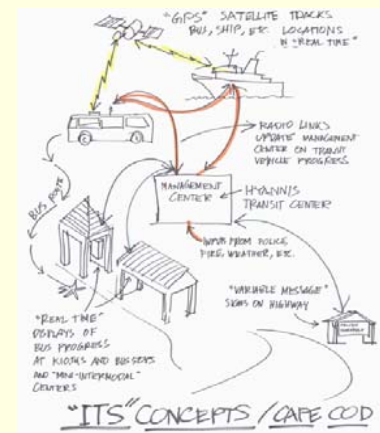 "GPS" SATELLITE TRACKS
BUS, SHIP, ETC. LOCATIONS
IN "REAL TIME"
RADIO LINKS
UPDATE MANAGEMENT
CENTER ON TRANSIT
VEHICLE PROGRESS
MANAGEMENT
CENTER
HYANNIS
TRANSIT CENTER
BUS ROUTE
INPUT FROM POLICE
FIRE, WEATHER, ETC.
"VARIABLE MESSAGE"
SIGNS ON HIGHWAY
"REAL TIME"
DISPLAYS OF
BUS PROGRESS
AT KIOSKS AND BUS STOPS
AND "MINI-INTERMODAL"
CENTERS
"ITS" CONCEPTS / CAPE COD